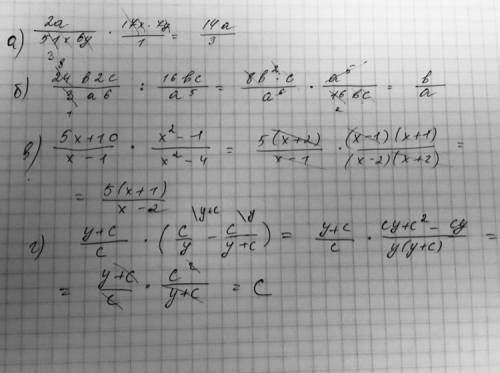 а) 2a/51x6y · 17x·7y/1 = 14a/3
б) 24b2c/3a6 : 16bc/a5 = 8b2·c/a6 · a5/16bc = b/a
в) 5x+10/x-1 · x²-1/x²-4 = 5(x+2)/x-1 · (x-1)(x+1)/(x-2)(x+2) =
= 5(x+1)/x-2
г) y+c/c · (c/y - c/y+c) = y+c/c · cy+c²-cy/y(y+c) =
= y+c/c · c²/y+c = c